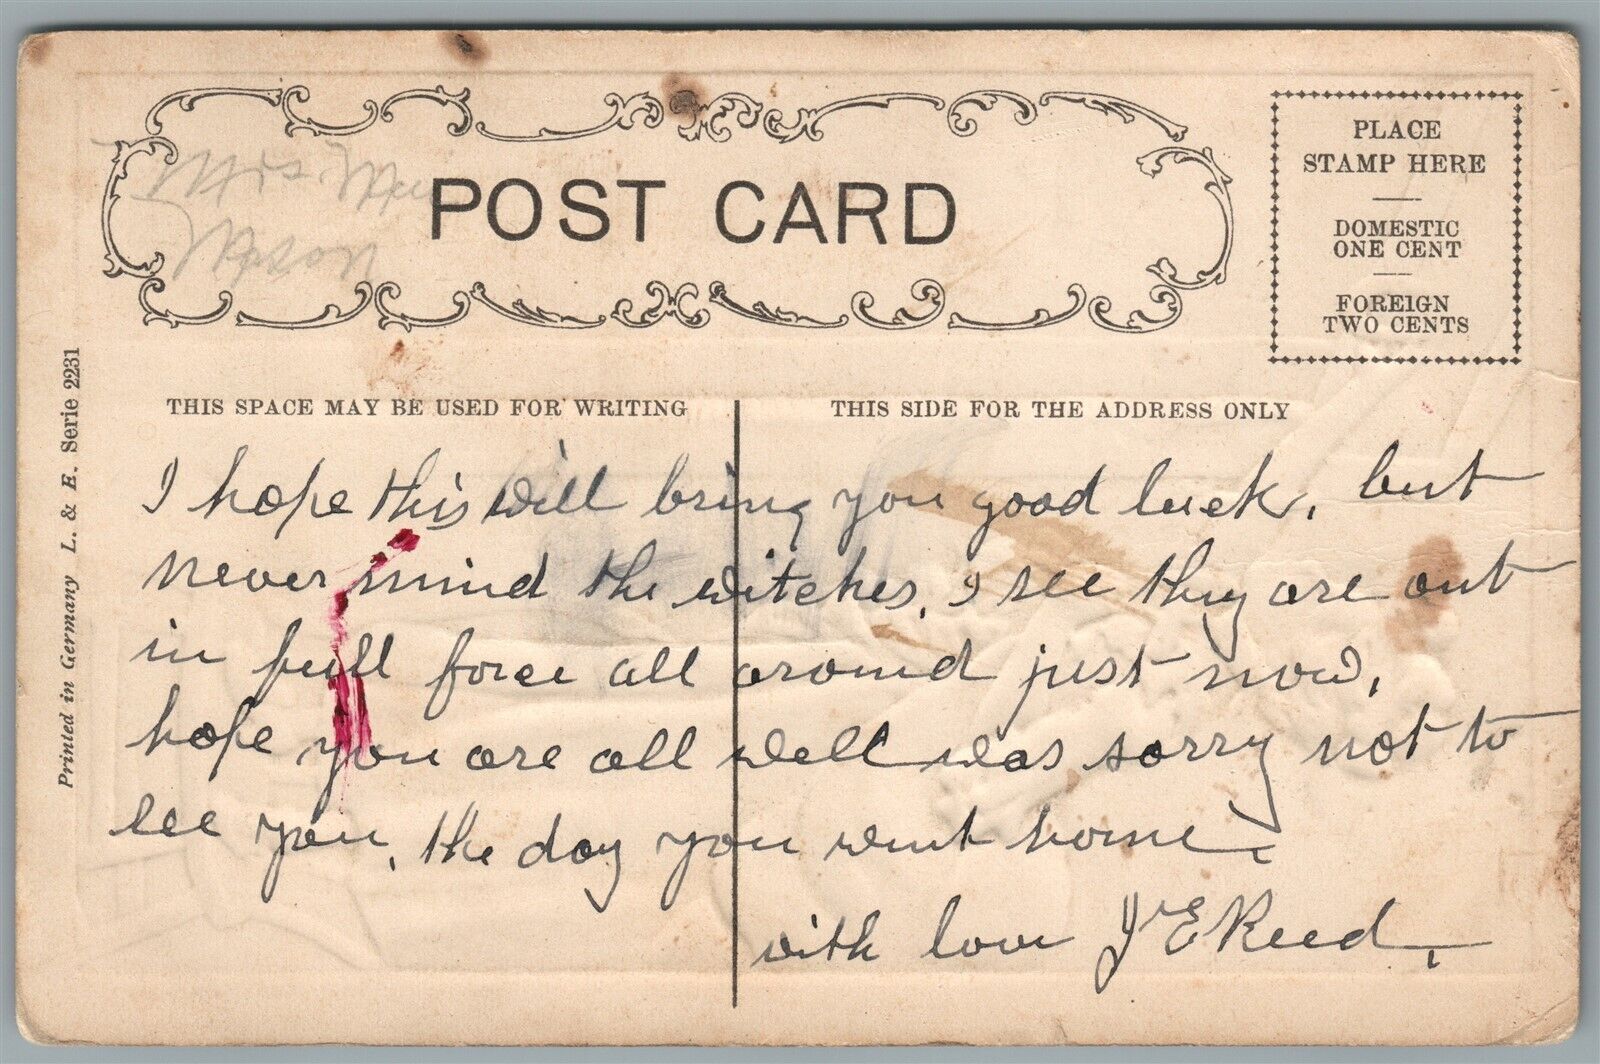 Mrs
POST CARD
PLACE
STAMP HERE
DOMESTIC
ONE CENT
FOREIGN
TWO CENTS
Printed in Germany L. & E. Serie 2231
THIS SPACE MAY BE USED FOR WRITING
THIS SIDE FOR THE ADDRESS ONLY
I hope this will bring you good luck, but
never mind the witches, I see they are out
in full force all around just now,
hope you are all well was sorry not to
see you, the day you went home.
with love J E Reed.